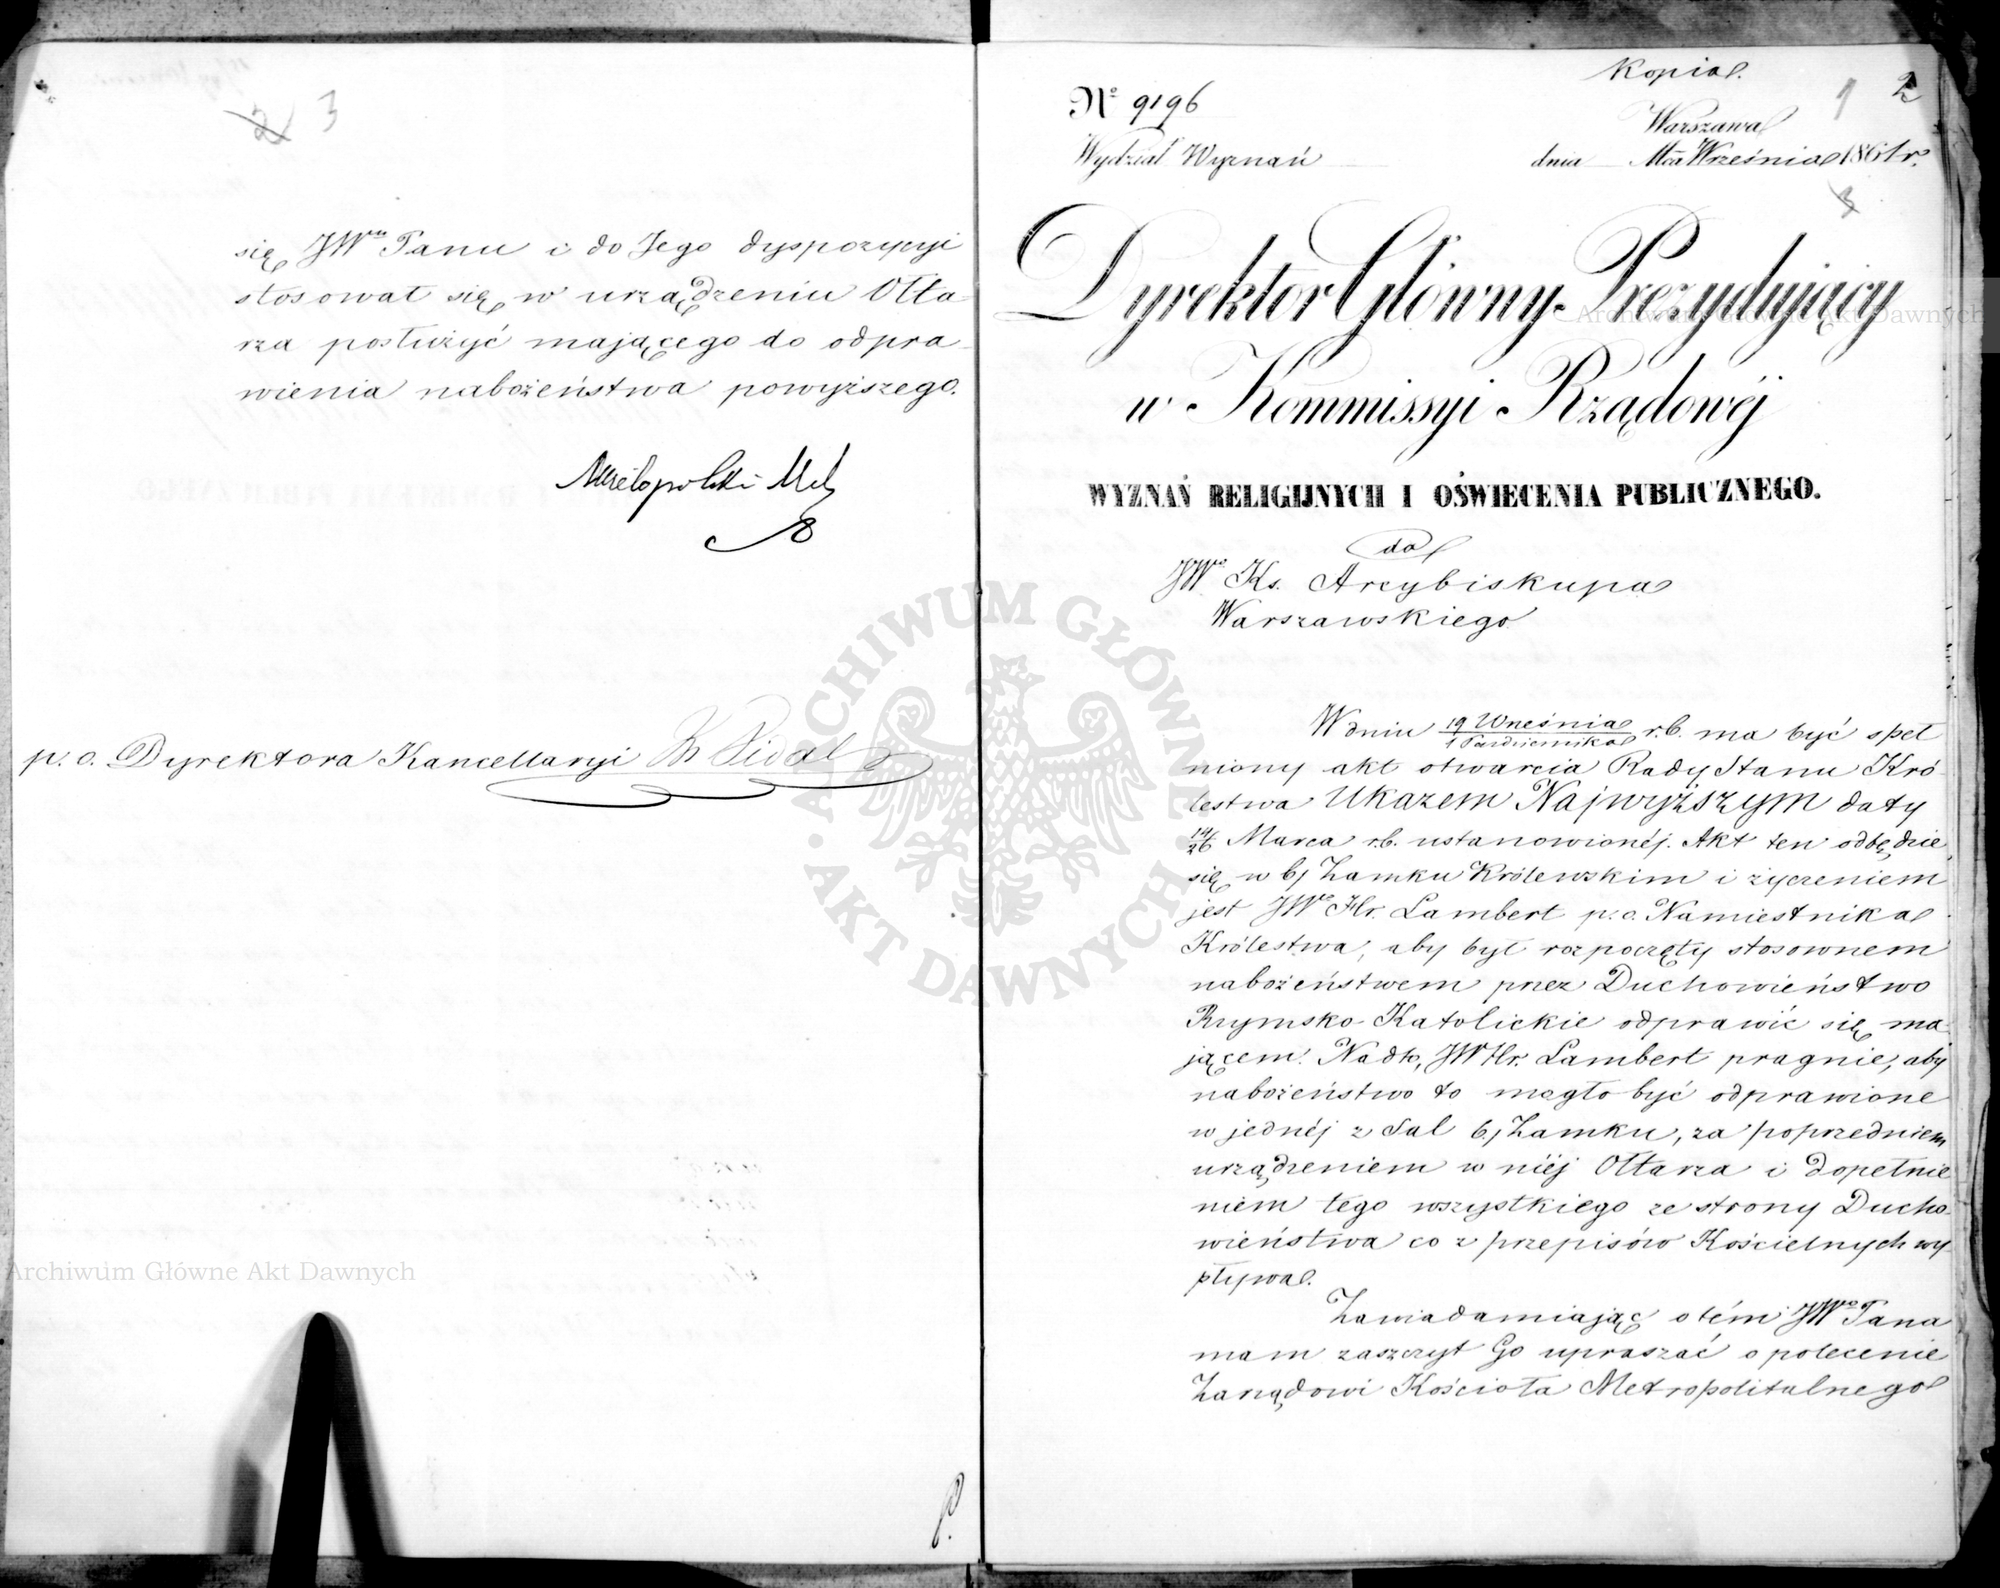 2 3
się JWu Panu i do Jego dyspozycyi
stosował się w urządzeniu Ołta-
rza posłużyć mającego do odpra-
wienia nabożeństwa powyższego.
Wielopolski
p. o. Dyrektora Kancellaryi
Archiwum Główne Akt Dawnych
Kopia.
1 2
No 9196
Warszawa
Wydział Wyznań
dnia Mca Września 1861 r.
3
Dyrektor Główny Prezydujący
w Kommissyi Rządowéj
WYZNAŃ RELIGIJNYCH I OŚWIECENIA PUBLICZNEGO.
Archiwum Główne Akt Dawnych
do
JWo Ks. Arcybiskupa
Warszawskiego
W dniu 19 Września / 1 Października r.b. ma być speł
niony akt otwarcia Rady Stanu Kró-
lestwa Ukazem Najwyższym daty
14/26 Marca r.b. ustanowionéj. Akt ten odbędzie
się w bj Zamku Królewskim i życzeniem
jest JWo Hr. Lambert p. o. Namiestnika
Królestwa, aby był rozpoczęty stosownem
nabożeństwem przez Duchowieństwo
Rzymsko Katolickie odprawić się ma-
jącem. Nadto, JW Hr. Lambert pragnie, aby
nabożeństwo to mogło być odprawione
w jednéj z Sal bj Zamku, za poprzedniem
urządzeniem w niéj Ołtarza i dopełnie
niem tego wszystkiego ze strony Ducho-
wieństwa co z przepisów Kościelnych wy-
pływa.
Zawiadamiając o tém JWo Pana
mam zaszczyt Go upraszać o polecenie
Zarządowi Kościoła Metropolitalnego
ARCHIWUM GŁÓWNE AKT DAWNYCH